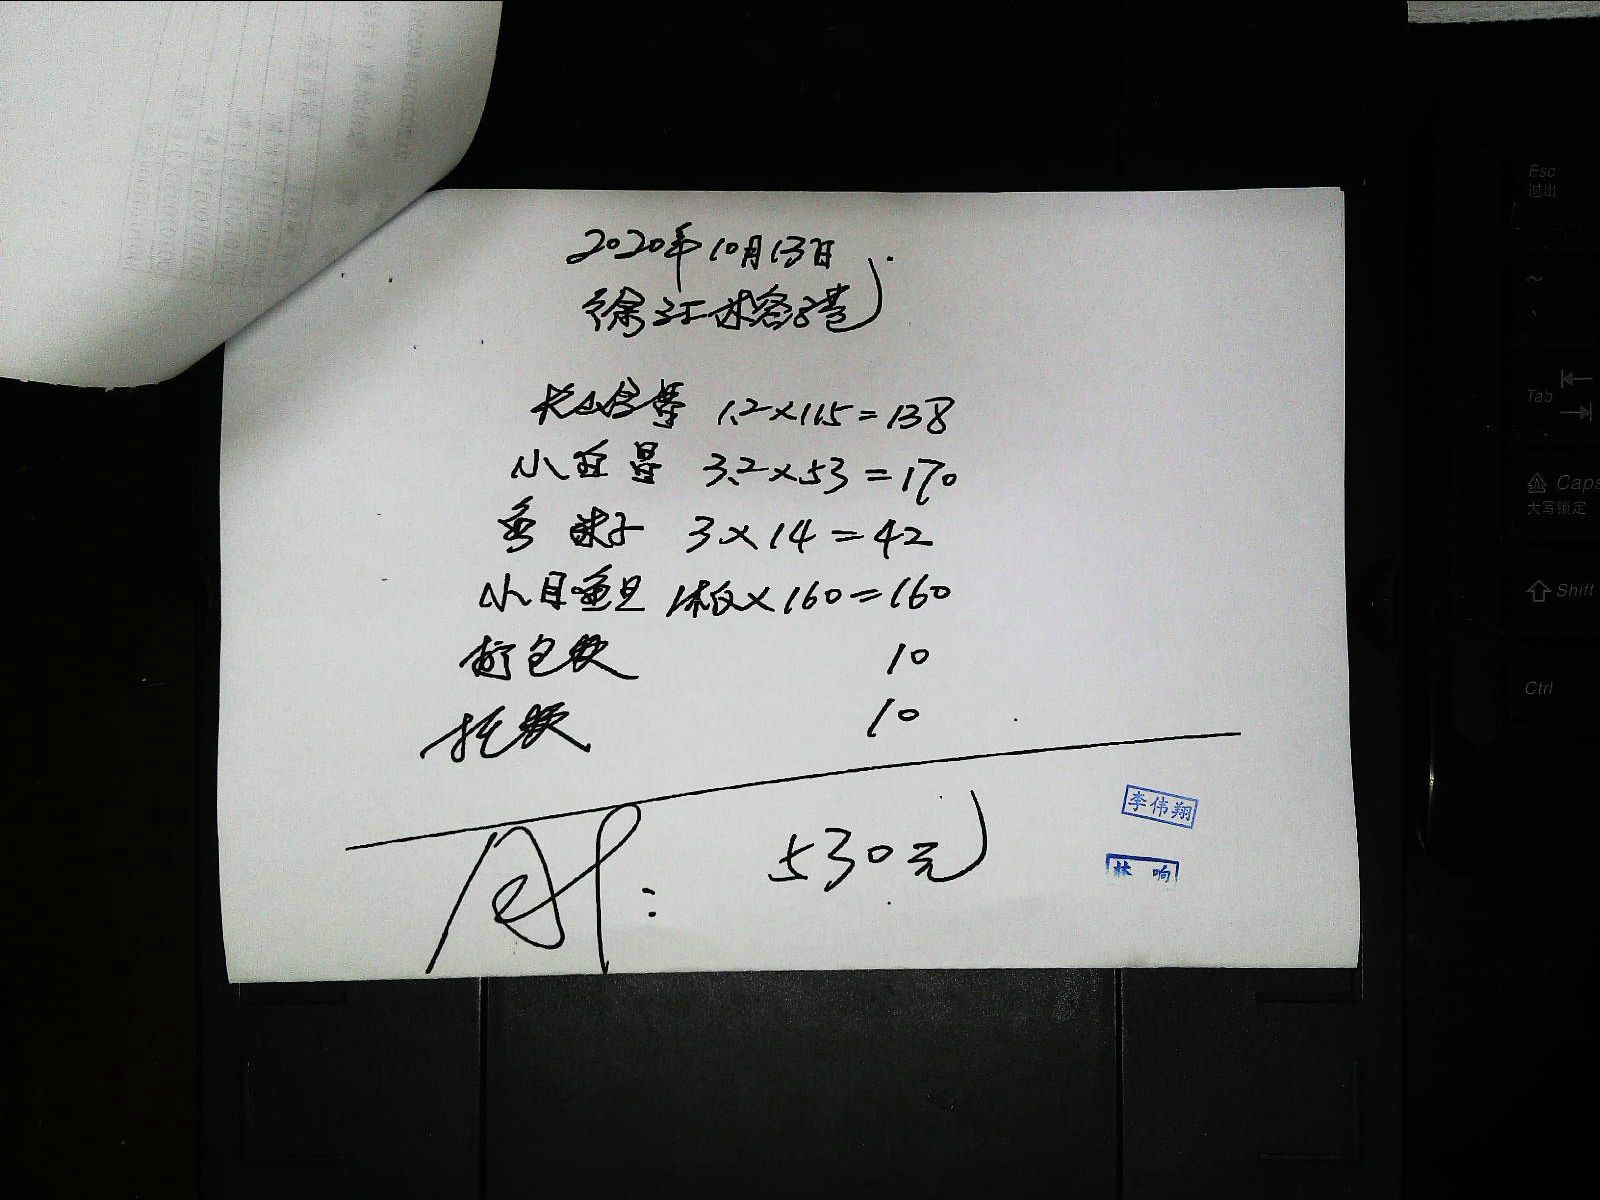 2020年10月13日
徐江林容港
1.2×115=138
小 3.2×53=170
3×14=42
小目鱼旦 1板×160=160
打包费 10
托费 10
: 530元
李伟翔
林 响
Esc
退出
~
Tab
Caps
大写锁定
Shift
Ctrl